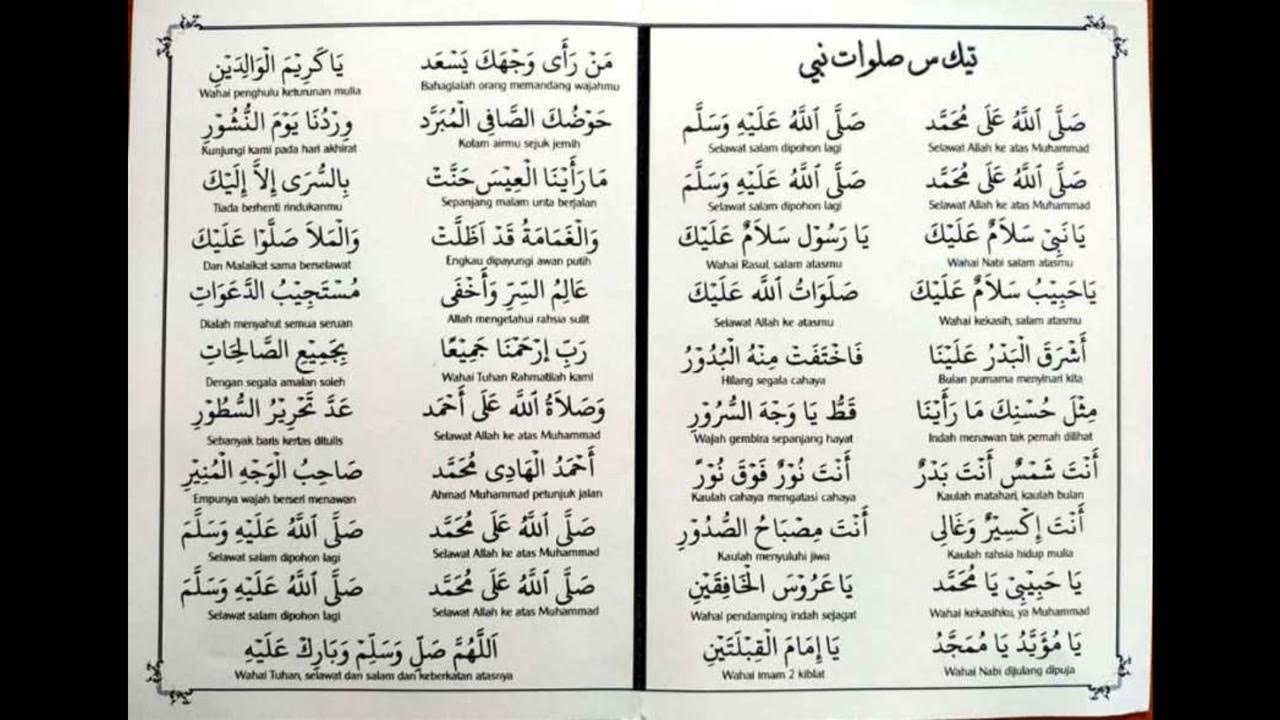 تيك س صلوات نبي
صَلَّى اللَّهُ عَلَى مُحَمَّد صَلَّى اللَّهُ عَلَيْهِ وَسَلَّم
Selawat Allah ke atas Muhammad Selawat salam dipohon lagi
صَلَّى اللَّهُ عَلَى مُحَمَّد صَلَّى اللَّهُ عَلَيْهِ وَسَلَّمَ
Selawat Allah ke atas Muhammad Selawat salam dipohon lagi
يَا نَبِيْ سَلَامٌ عَلَيْكَ يَا رَسُوْل سَلَامٌ عَلَيْكَ
Wahai Nabi salam atasmu Wahai Rasul, salam atasmu
يَاحَبِيْبُ سَلَامٌ عَلَيْكَ صَلَوَاتُ اللَّه عَلَيْكَ
Wahai kekasih, salam atasmu Selawat Allah ke atasmu
أَشْرَقَ الْبَدْرُ عَلَيْنَا فَاخْتَفَتْ مِنْهُ الْبُدُوْرُ
Bulan purnama menyinari kita Hilang segala cahaya
مِثْلَ حُسْنِكَ مَا رَأَيْنَا قَطُّ يَا وَجْهَ السُّرُوْرِ
Indah menawan tak pernah dilihat Wajah gembira sepanjang hayat
أَنْتَ شَمْسٌ أَنْتَ بَدْرٌ أَنْتَ نُوْرٌ فَوْقَ نُوْرٌ
Kaulah matahari, kaulah bulan Kaulah cahaya mengatasi cahaya
أَنْتَ إِكْسِيْرٌ وَغَالِى أَنْتَ مِصْبَاحُ الصُّدُوْرِ
Kaulah rahsia hidup mulia Kaulah menyuluhi jiwa
يَا حَبِيْبِيْ يَا مُحَمَّد يَا عَرُوْسَ الْخَافِقَيْنِ
Wahai kekasihku, ya Muhammad Wahai pendamping indah sejagat
يَا مُؤَيَّدُ يَا مُمَجَّدُ يَا إِمَامَ الْقِبْلَتَيْنِ
Wahai Nabi dijulang dipuja Wahai imam 2 kiblat
مَنْ رَأَى وَجْهَكَ يَسْعَد يَا كَرِيْمَ الْوَالِدَيْنِ
Bahagialah orang memandang wajahmu Wahai penghulu keturunan mulia
حَوْضُكَ الصَّافِى الْمُبَرَّد وِرْدُنَا يَوْمَ النُّشُوْرِ
Kolam airmu sejuk jernih Kunjungi kami pada hari akhirat
مَا رَأَيْنَا الْعِيْسَ حَنَّتْ بِالسُّرَى إِلاَّ إِلَيْكَ
Sepanjang malam unta berjalan Tiada berhenti rindukanmu
وَالْغَمَامَةُ قَدْ اَظَلَّتْ وَالْمَلاَ صَلَّوْا عَلَيْكَ
Engkau dipayungi awan putih Dan Malaikat sama berselawat
عَالِمُ السِّرِّ وَأَخْفَى مُسْتَجِيْبُ الدَّعَوَاتِ
Allah mengetahui rahsia sulit Dialah menyahut semua seruan
رَبِّ إِرْحَمْنَا جَمِيْعًا بِجَمِيْعِ الصَّالِحَاتِ
Wahai Tuhan Rahmatilah kami Dengan segala amalan soleh
وَصَلَاةُ اللَّه عَلَى أَحْمَد عَدَّ تَحْرِيْرِ السُّطُوْرِ
Selawat Allah ke atas Muhammad Sebanyak baris kertas ditulis
أَحْمَدُ الْهَادِى مُحَمَّد صَاحِبُ الْوَجْهِ الْمُنِيْرِ
Ahmad Muhammad petunjuk jalan Empunya wajah berseri menawan
صَلَّى اللَّهُ عَلَى مُحَمَّد صَلَّى اللَّهُ عَلَيْهِ وَسَلَّمَ
Selawat Allah ke atas Muhammad Selawat salam dipohon lagi
صَلَّى اللَّهُ عَلَى مُحَمَّد صَلَّى اللَّهُ عَلَيْهِ وَسَلَّمَ
Selawat Allah ke atas Muhammad Selawat salam dipohon lagi
اَللَّهُمَّ صَلِّ وَسَلِّمْ وَبَارِكْ عَلَيْهِ
Wahai Tuhan, selawat dan salam dan keberkatan atasnya